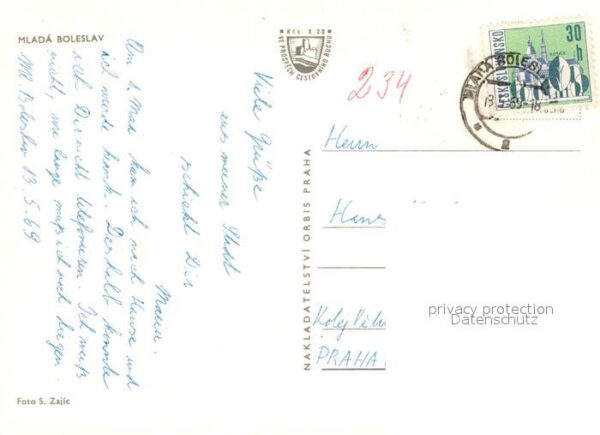 MLADÁ BOLESLAV
Kčs 0,20
VE PROSPĚCH CESTOVNÍHO RUCHU
234
30
h
ČESKOSLOVENSKO
MLADÁ BOLESLAV
2
Viele Grüße
aus meiner Stadt
schickt Dir
Am 1. Mai kam ich nach Hause und
ich wurde krank. Deshalb konnte
ich Dir nicht telefonieren. Ich weiß
nicht, wie lange muß ich noch liegen.
Ml. Boleslav 13.5.69
Herrn
Hans
Kolej Větrn
PRAHA
NAKLADATELSTVÍ ORBIS PRAHA
privacy protection
Datenschutz
Foto S. Zajíc